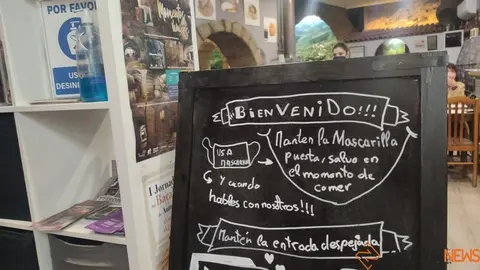 POR FAVOR
USO
BiENVENiDO!!!
Manten la Mascarilla
puesta, salvo en
el momento de
comer
USA
MASCARILLA
Y cuando
hables con nosotros!!!
Mantén la entrada despejada
I Jornada
NEWS